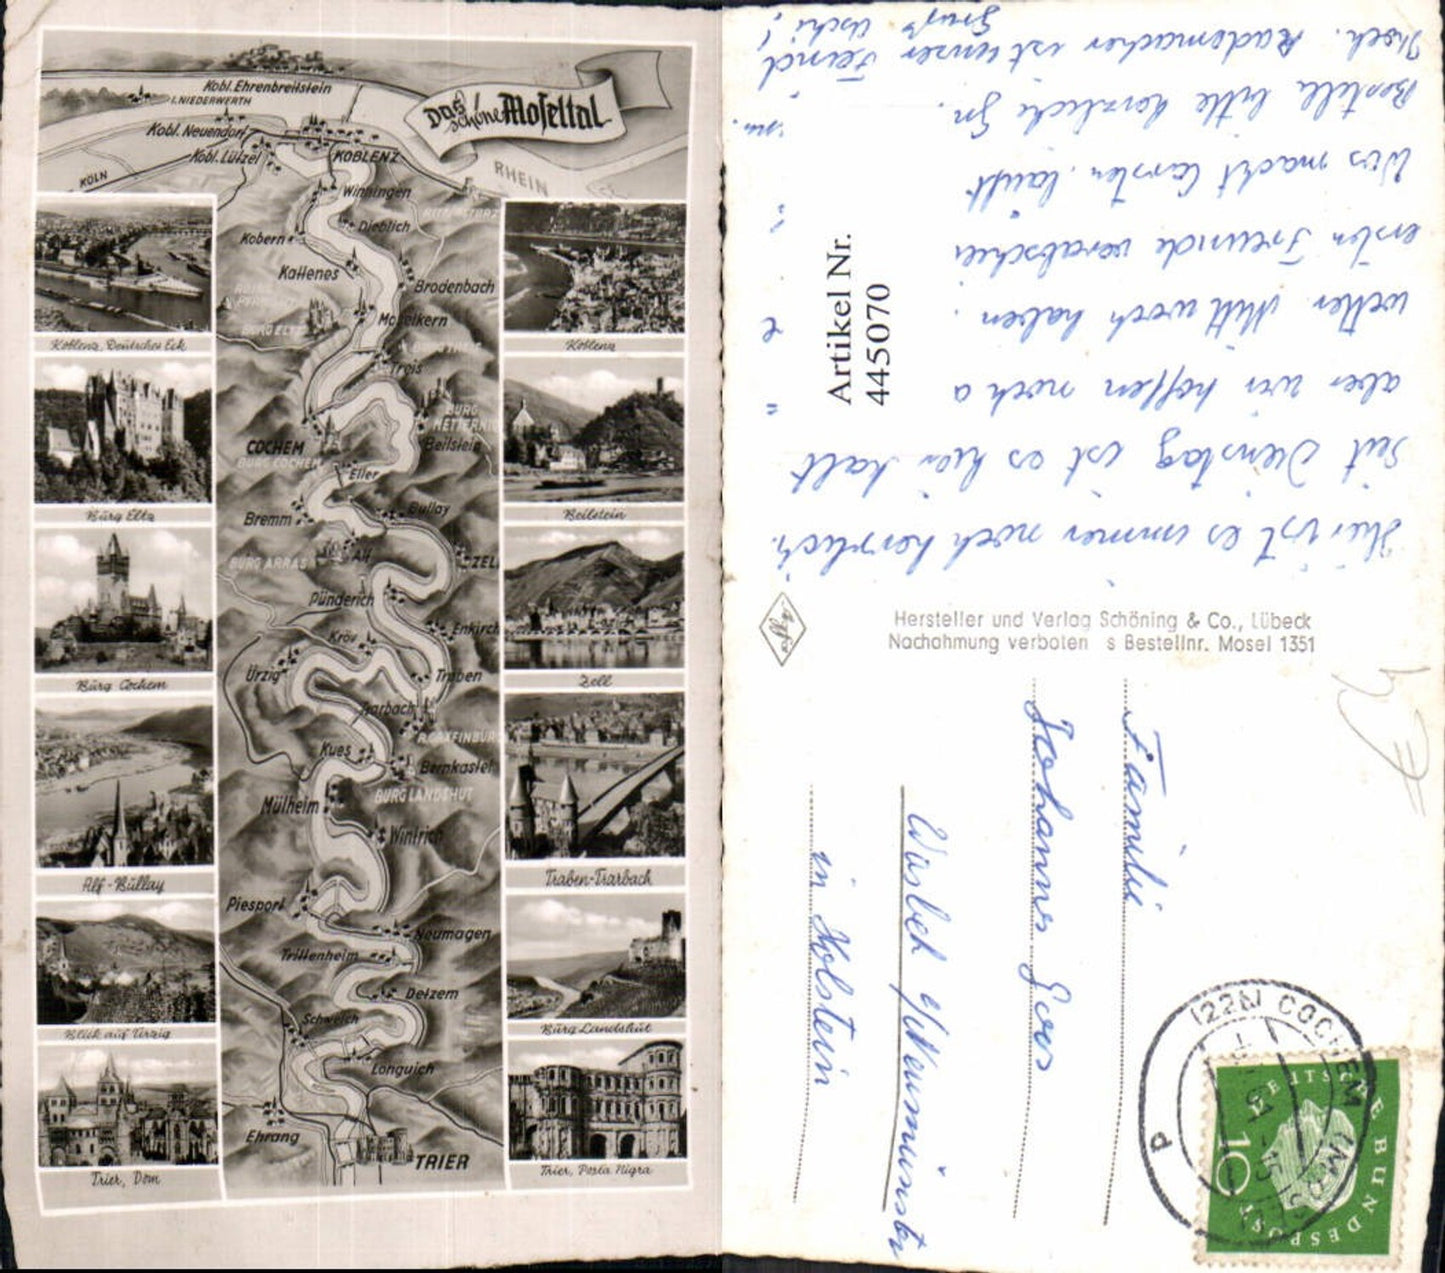 Das schöne Moseltal
Kobl. Ehrenbreitstein
I. NIEDERWERTH
Kobl. Neuendorf
Kobl. Lützel
KOBLENZ
KÖLN
RHEIN
Winningen
Dieblich
Kobern
Kattenes
Brodenbach
Moselkern
BURG ELTZ
Treis
COCHEM
BURG COCHEM
BURG METTERNICH
Beilstein
Eller
Bremm
Bullay
BURG ARRAS
Alf
ZELL
Pünderich
Enkirch
Kröv
Ürzig
Traben
Trarbach
R. GRAFINBURG
Kues
Bernkastel
BURG LANDSHUT
Mülheim
Wintrich
Piesport
Neumagen
Trittenheim
Detzem
Schweich
Longuich
Ehrang
TRIER
Koblenz, Deutsches Eck
Burg Eltz
Burg Cochem
Alf-Bullay
Blick auf Ürzig
Trier, Dom
Koblenz
Beilstein
Zell
Traben-Trarbach
Burg Landshut
Trier, Porta Nigra
Hier ist es immer noch herrlich.
Seit Dienstag ist es hier kalt
aber wir hoffen noch a
wetter. Mittwoch haben
ersten Freunde verabschie
Was macht Carsten, läuft
Bestelle bitte herzliche Gr
Rademacher ist unser Feind
Gruß Uschi!
Artikel Nr.
445070
Hersteller und Verlag Schöning & Co., Lübeck
Nachahmung verboten s Bestellnr. Mosel 1351
Familie
Johanns Goos
Wasbek b/Neumünster
in Holstein
(22b) COCHEM
DEUTSCHE BUNDESPOST
10